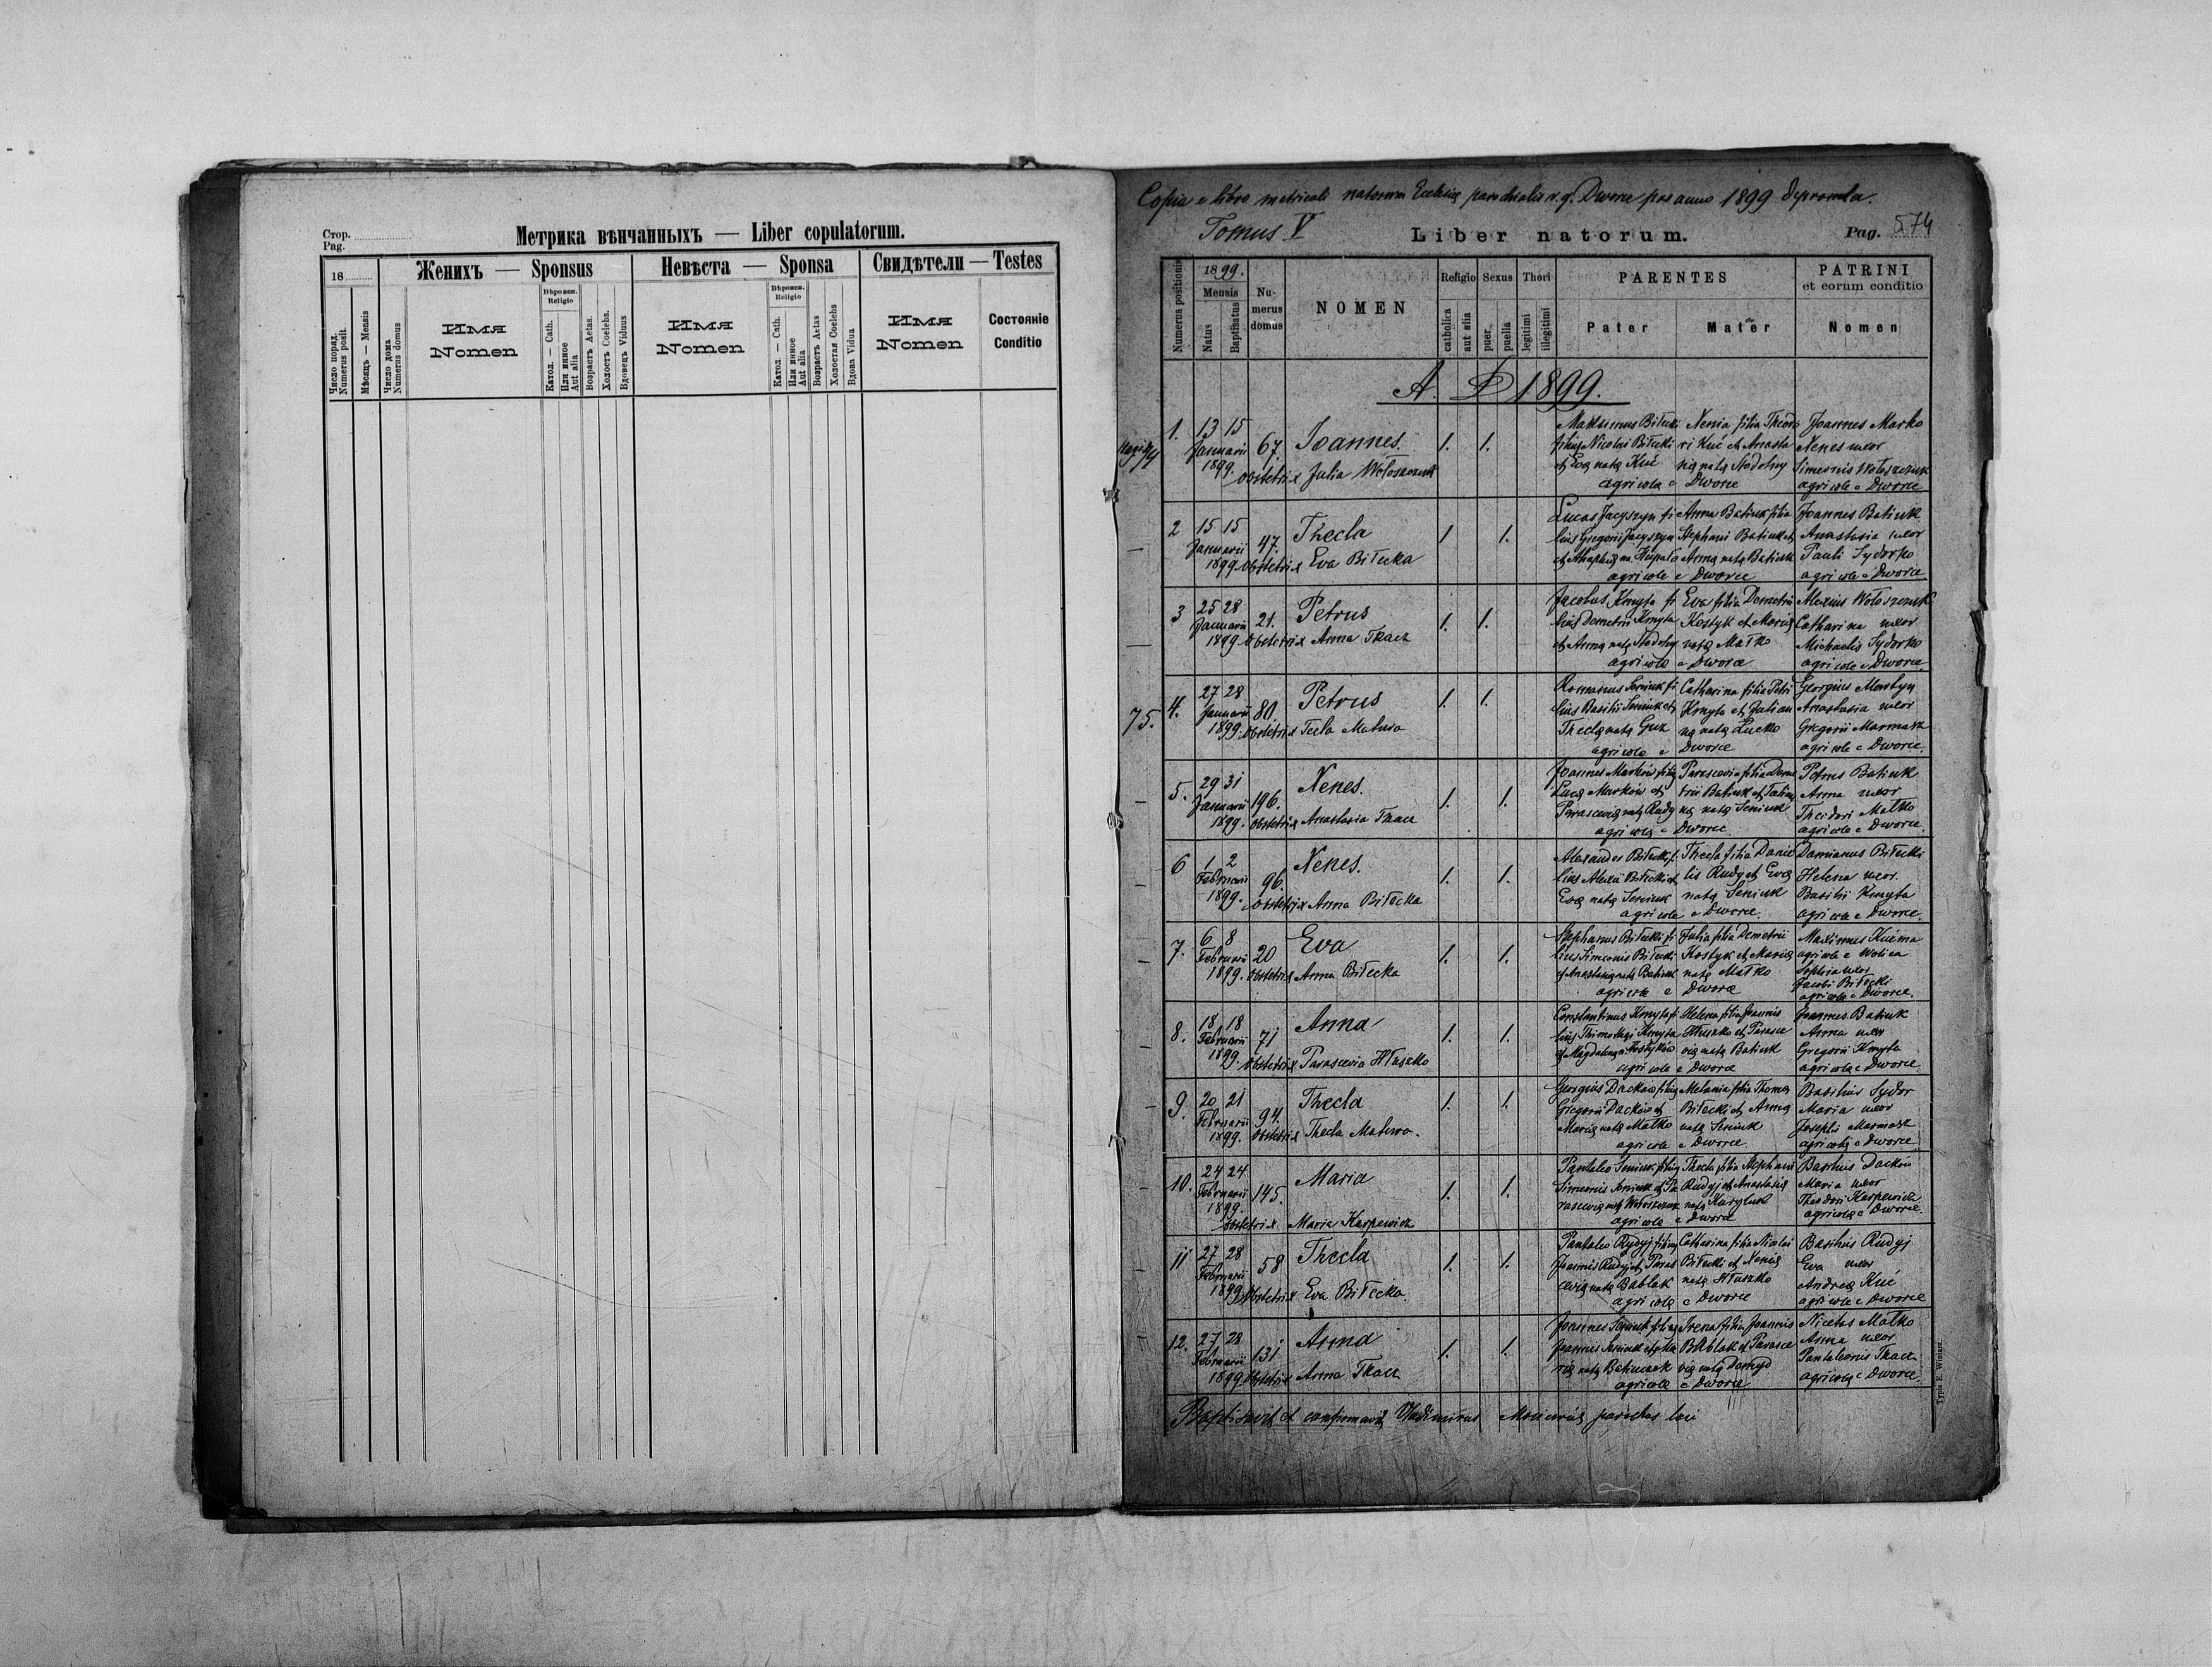 Стор.
Pag.
Метрика вѣнчанныхъ — Liber copulatorum.
18
Женихъ — Sponsus
Невѣста — Sponsa
Свидѣтели — Testes
Число поряд.
Numerus posit.
Мѣсяцъ — Mensis
Число дома
Numerus domus
Имя
Nomen
Вѣроисп.
Religio
Катол. — Cath.
Или инное
Aut alia
Возрастъ Aetas.
Холостъ Coelebs.
Вдовецъ Viduus
Имя
Nomen
Вѣроисп.
Religio
Катол. — Cath.
Или инное
Aut alia
Возрастъ Aetas
Холостая Coelebs
Вдова Vidua
Имя
Nomen
Состояніе
Conditio
Copia e libro metricali natorum Ecclesię parochialis r. g. Dworce pro anno 1899 depromta.
Tomus V
Liber natorum.
Pag. 574
Numerus positionis
1899.
Mensis
Natus
Baptisatus
Nu-
merus
domus
NOMEN
Religio
catholica
aut alia
Sexus
puer
puella
Thori
legitimi
illegitimi
PARENTES
Pater
Mater
PATRINI
et eorum conditio
Nomen
A. D 1899.
1. 13 15
Januarii
1899.
67.
Joannes.
obstetrix Julia Wołoszczuk
1. 1.
Maksimus Biłecki
filius Nicolai Biłecki
et Evę natę Kuć
Nenia filia Theodo
ri Kuć et Anasta
się natę Stodolny
agricolę e Dworce
Joannes Marko
Nenes uxor
Simeonis Wołoszczuk
agricolę e Dworce
2 15 15
Januarii
1899
47.
Thecla
obstetrix Eva Biłecka
1 1.
Lucas Jacyszyn fi
lius Gregorii Jacyszyn
Anna Batiuk filia
Stephani Batiuk et
Annę natę Batiuk
agricolę e Dworce
Joannes Batiuk
Anastasia uxor
Pauli Sydorko
agricolę e Dworce
3 25 28
Januarii
1899
21.
Petrus
obstetrix Anna Tkacz
1. 1.
Jacobus Kmyta fi
lius Demetrii Kmyta
et Annę natę Stodolny
Eva filia Demetrii
Kostyk et Marię
natę Matko
agricolę e Dworce
Alexius Wołoszczuk
Catharina uxor
Michaelis Sydorko
agricolę e Dworce
75.
4. 27 28
Januarii
1899.
80.
Petrus
obstetrix Tecla Matwra
1. 1.
Romanus Seniuk fi
lius Basilii Seniuk et
Theclę natę Guz
Catharina filia Petri
Kmyta et Julian
nę natę Lucko
agricolę e Dworce
Georgius Martyn
Anastasia uxor
Gregorii Marmasz
agricolę e Dworce.
5. 29 31
Januarii
1899.
196.
Nenes.
obstetrix Anastasia Tkacz
1. 1.
Joannes Markow filius
Lucę Markow et
Parascevię natę Rudy
Parascevia filia Deme
trii Batiuk et Tatian
nę natę Seniuk
agricolę e Dworce.
Petrus Batiuk
Anna uxor
Theodori Matko
agricolę e Dworce.
6 1 2
Februarii
1899.
96.
Nenes.
obstetrix Anna Biłecka
1. 1.
Alexander Biłecki fi
lius Alexii Biłecki et
Evę natę Seniuk
Thecla filia Danie
lis Rudy et Evę
natę Seniuk
agricolę e Dworce.
Damianus Biłecki
Helena uxor
Basilii Kmyta
agricolę e Dworce.
7. 6 8
Februarii
1899.
20
Eva
obstetrix Anna Biłecka
1. 1.
Stephanus Biłecki fi
lius Simeonis Biłecki
et Anastasię natę Batiuk
Julia filia Demetrii
Kostyk et Marię
natę Matko
agricolę e Dworce
Maximus Kuźma
agricola e Wolica
Sophia uxor
Jacobi Biłecki
agricolę e Dworce.
8. 18 18
Februarii
1899.
71
Anna
obstetrix Parascevia Hłuszko
1. 1.
Constantinus Kmyta fi
lius Thimothei Kmyta
et Magdalenę Kostyków
Helena filia Joannis
Hłuszko et Parasce
vię natę Batiuk
agricolę e Dworce
Joannes Batiuk
Anna uxor
Gregorii Kmyta
agricolę e Dworce
9. 20 21
Februarii
1899.
94.
Thecla
obstetrix Thecla Matwra.
1. 1.
Georgius Dackow filius
Gregorii Dackow et
Marię natę Matko
Melania filia Thomę
Biłecki et Annę
natę Seniuk
agricolę e Dworce.
Basilius Sydor
Maria uxor
Josephi Marmasz
agricolę e Dworce
10. 24 24
Februarii
1899.
145.
Maria
obstetrix Maria Karpewicz
1. 1.
Pantaleo Seniuk filius
Simeonis Seniuk et Pa
rascevię natę Wołoszczuk
Thecla filia Stephani
Rudyj et Anastasię
natę Kuryluk
agricolę e Dworce
Basilius Dackow
Maria uxor
Theodori Karpewicz
agricolę e Dworce.
11 27 28
Februarii
1899
58
Thecla
obstetrix Eva Biłecka.
1. 1.
Pantaleo Rydyj filius
Joannis Rudyj et Paras
cevię natę Bablak
Catharina filia Nicolai
Biłecki et Nenię
natę Hłuszko
agricolę e Dworce
Basilius Rudyj
Eva uxor
Andreę Kuć
agricolę e Dworce
12. 27 28
Februarii
1899
131
Anna
obstetrix Anna Tkacz
1. 1.
Joannes Seniuk filius
Joannis Seniuk
natę Batiuczok
Irena filia Joannis
Bablak et Parasce
vię natę Demyd
agricolę e Dworce
Nicetas Matko
Anna uxor
Pantaleonis Tkacz
agricolę e Dworce.
Baptisavit et confirmavit Vladimirus parochus loci
Typis E. Winiarz.